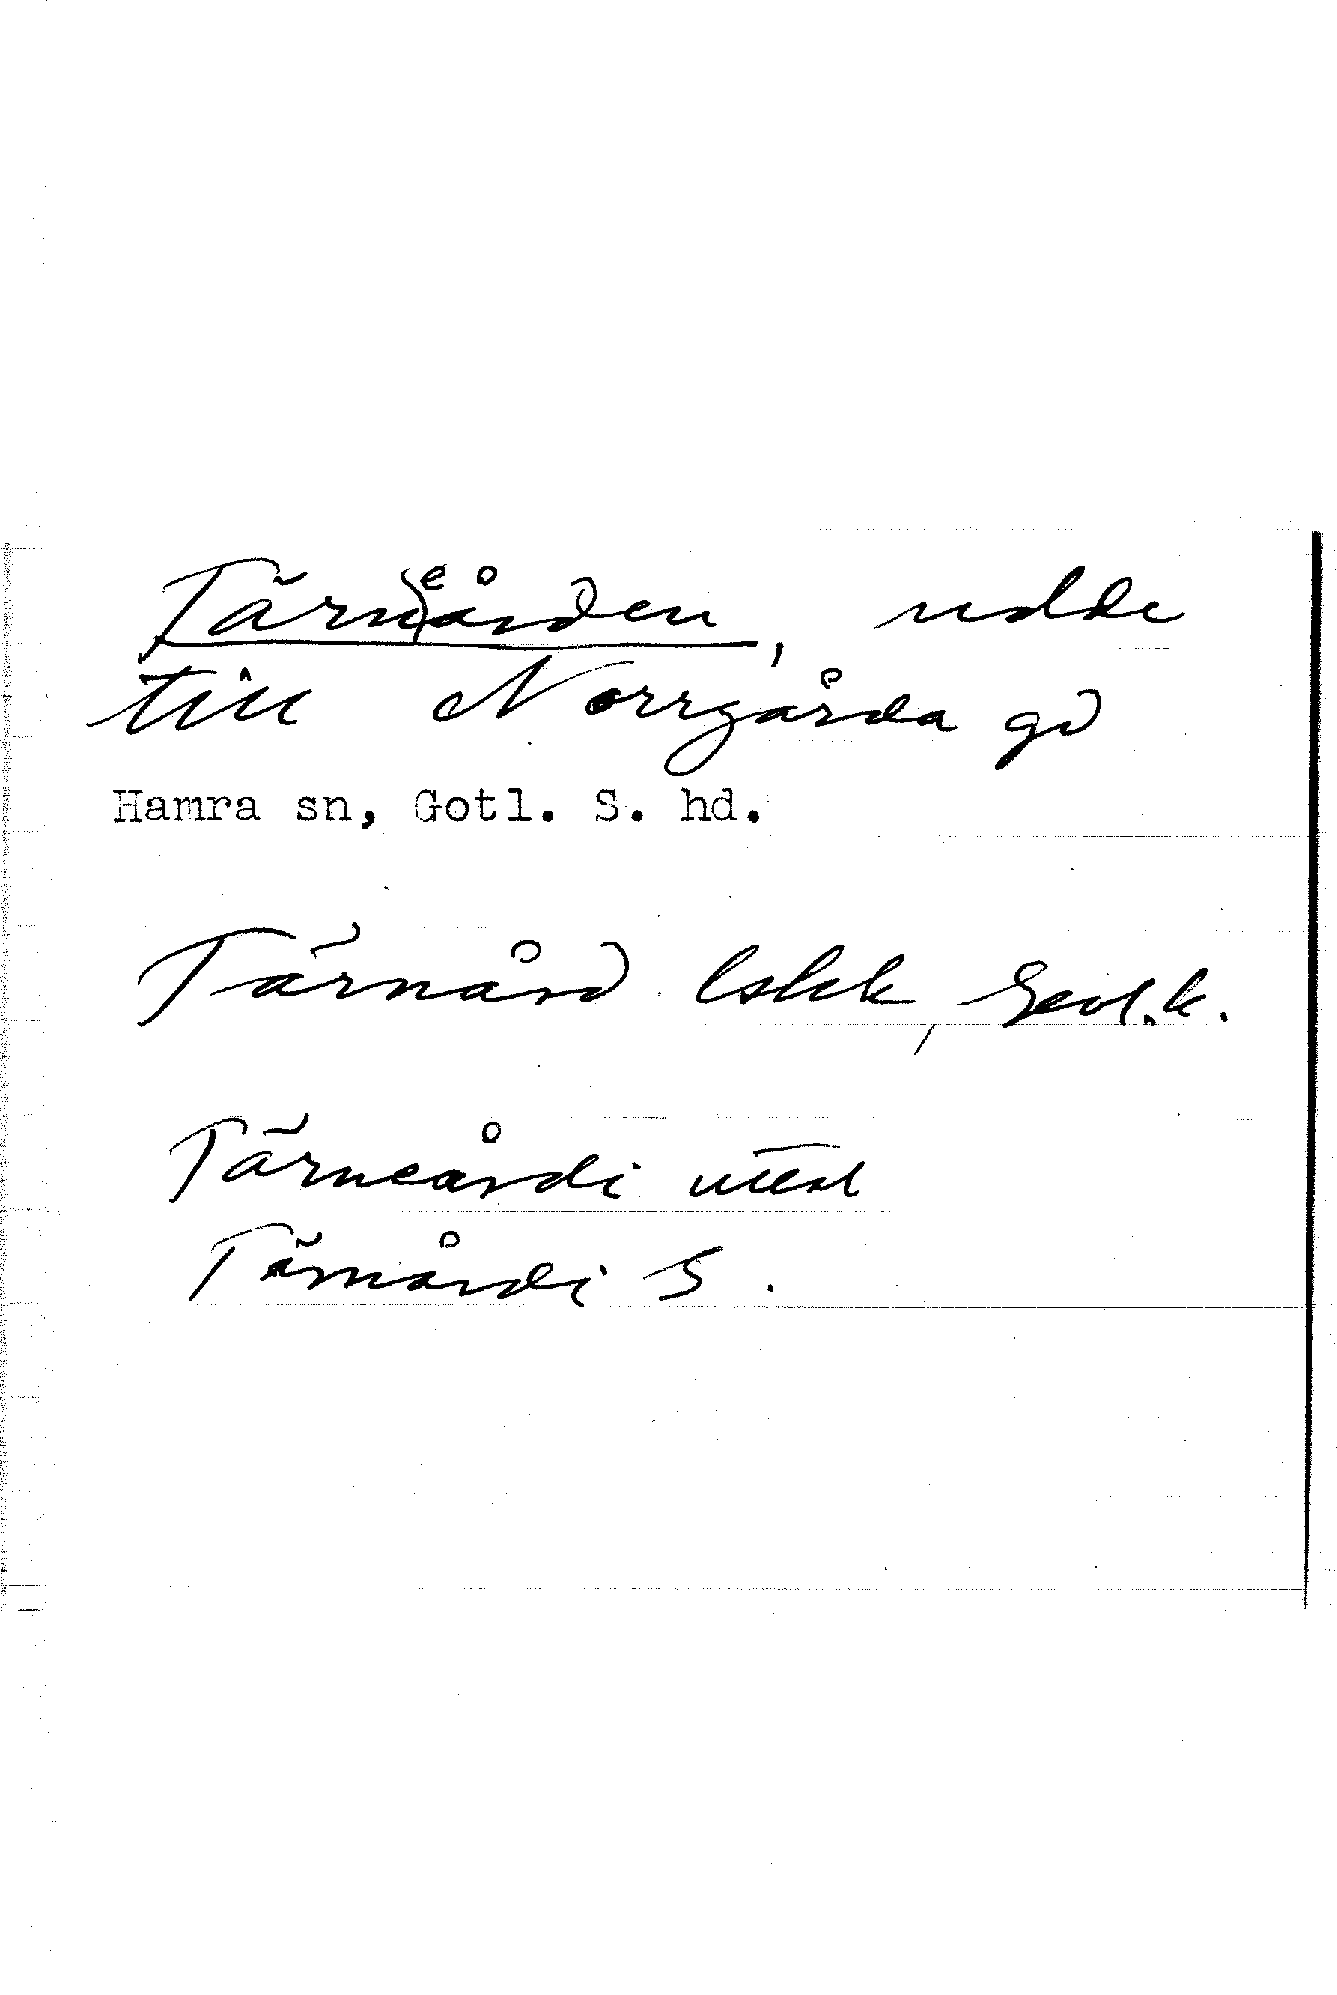 Tärn(e)ården, udde
till Norrgårda gd
Hamra sn, Gotl. S. hd.
Tärnård lskk, Geol.k.
Tärneårdi uttal
Tärnårdi S.